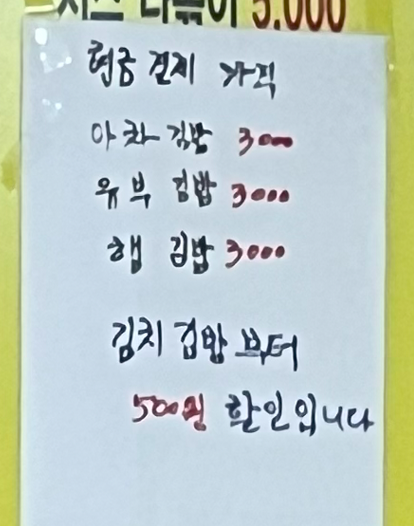 치즈 떡볶이 5,000
현금 결제 가격
야채김밥 3000
유부 김밥 3000
햄 김밥 3000
김치 김밥 부터
500원 할인입니다